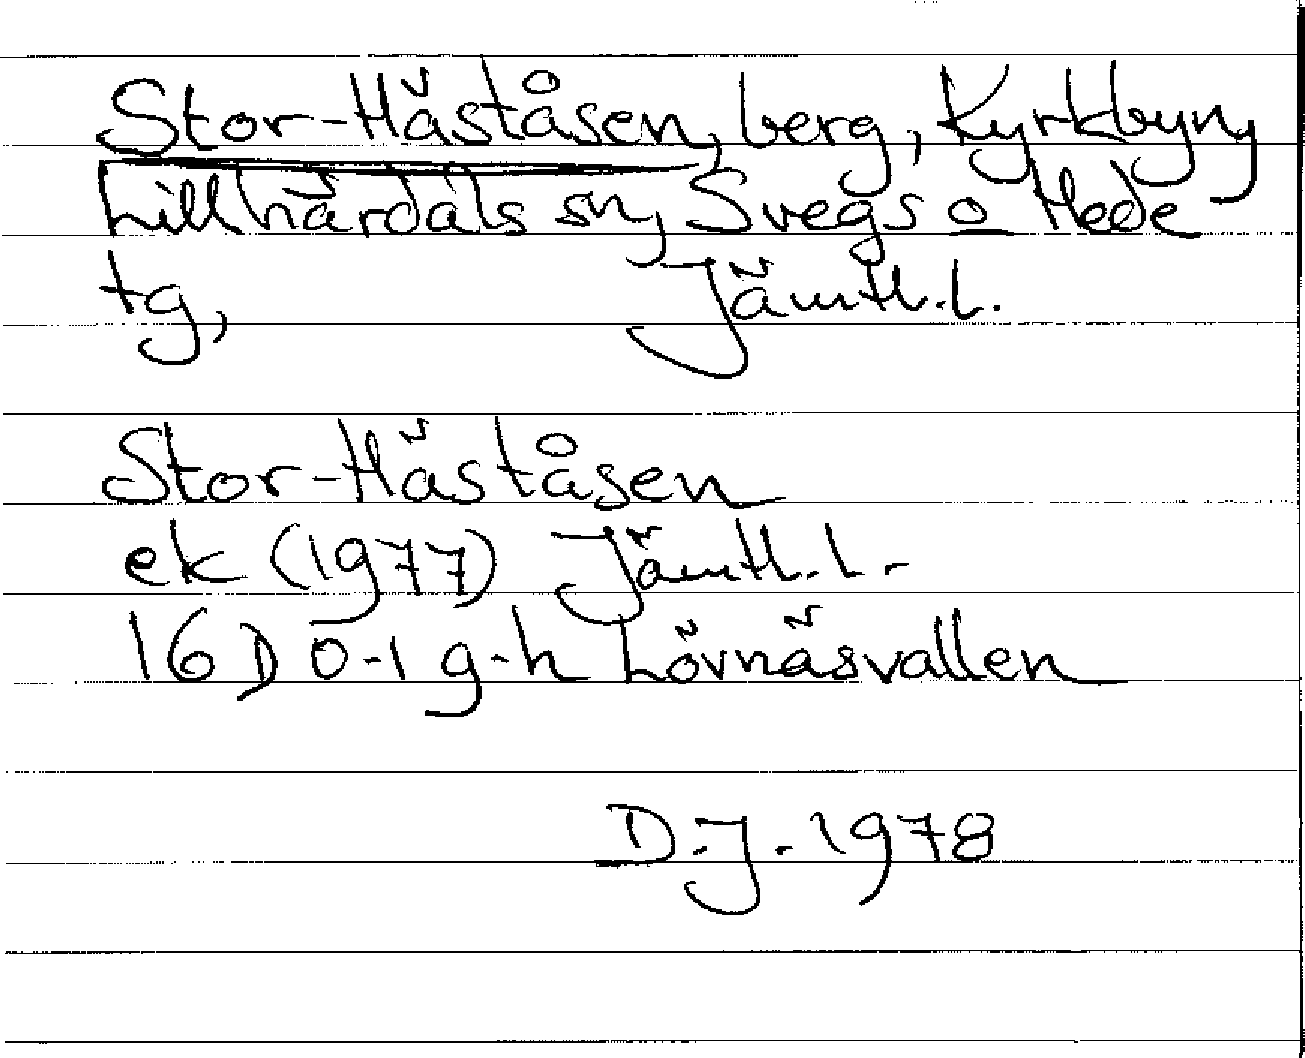 Stor-Häståsen, berg, Kyrkbyn,
Lillhärdals sn, Svegs o Hede
tg, Jämtl.l.
Stor-Häståsen
ek (1977) Jämtl.l.
16 D 0-1 g-h Lövnäsvallen
D.J. 1978